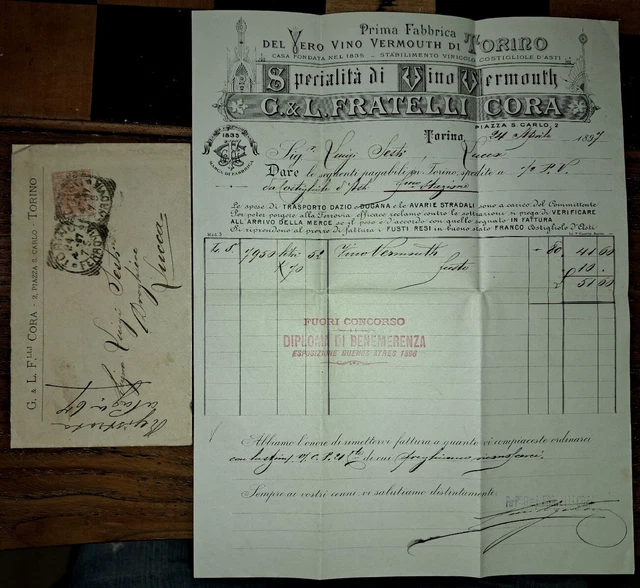 Prima Fabbrica
DEL VERO VINO VERMOUTH DI TORINO
CASA FONDATA NEL 1835 - STABILIMENTO VINICOLO COSTIGLIOLE D'ASTI
Specialità di Vino Vermouth
G. & L. FRATELLI CORA
PIAZZA S. CARLO, 2
1835
MARCA DI FABBRICA
Torino, 24 Aprile 1897
Sig. Luigi Sesti Lucca
Dare le seguenti pagabili in Torino, spedite a 1/o P. V.
da Costigliole d'Asti
Le spese di TRASPORTO DAZIO e DOGANA e le AVARIE STRADALI sono a carico del Committente
Per poter porgere alla Ferrovia efficace reclamo contro le sottrazioni si prega di VERIFICARE
ALL'ARRIVO DELLA MERCE se il peso è d'accordo con quello segnato IN FATTURA
Si riprendono al prezzo di fattura i FUSTI RESI in buono stato FRANCO Costigliole d'Asti
7950 litri 52 Vino Vermouth 80 41 60
Fusto 10
51 60
FUORI CONCORSO
DIPLOMA DI BENEMERENZA
ESPOSIZIONE BUENOS AYRES 1896
Abbiamo l'onore di rimettervi fattura a quanto vi compiaceste ordinarci
di cui preghiamo
Sempre ai vostri cenni, vi salutiamo distintamente.
G. & L. F.LLI CORA - 2, PIAZZA S. CARLO - TORINO
Signor Luigi Sesti
Lucca